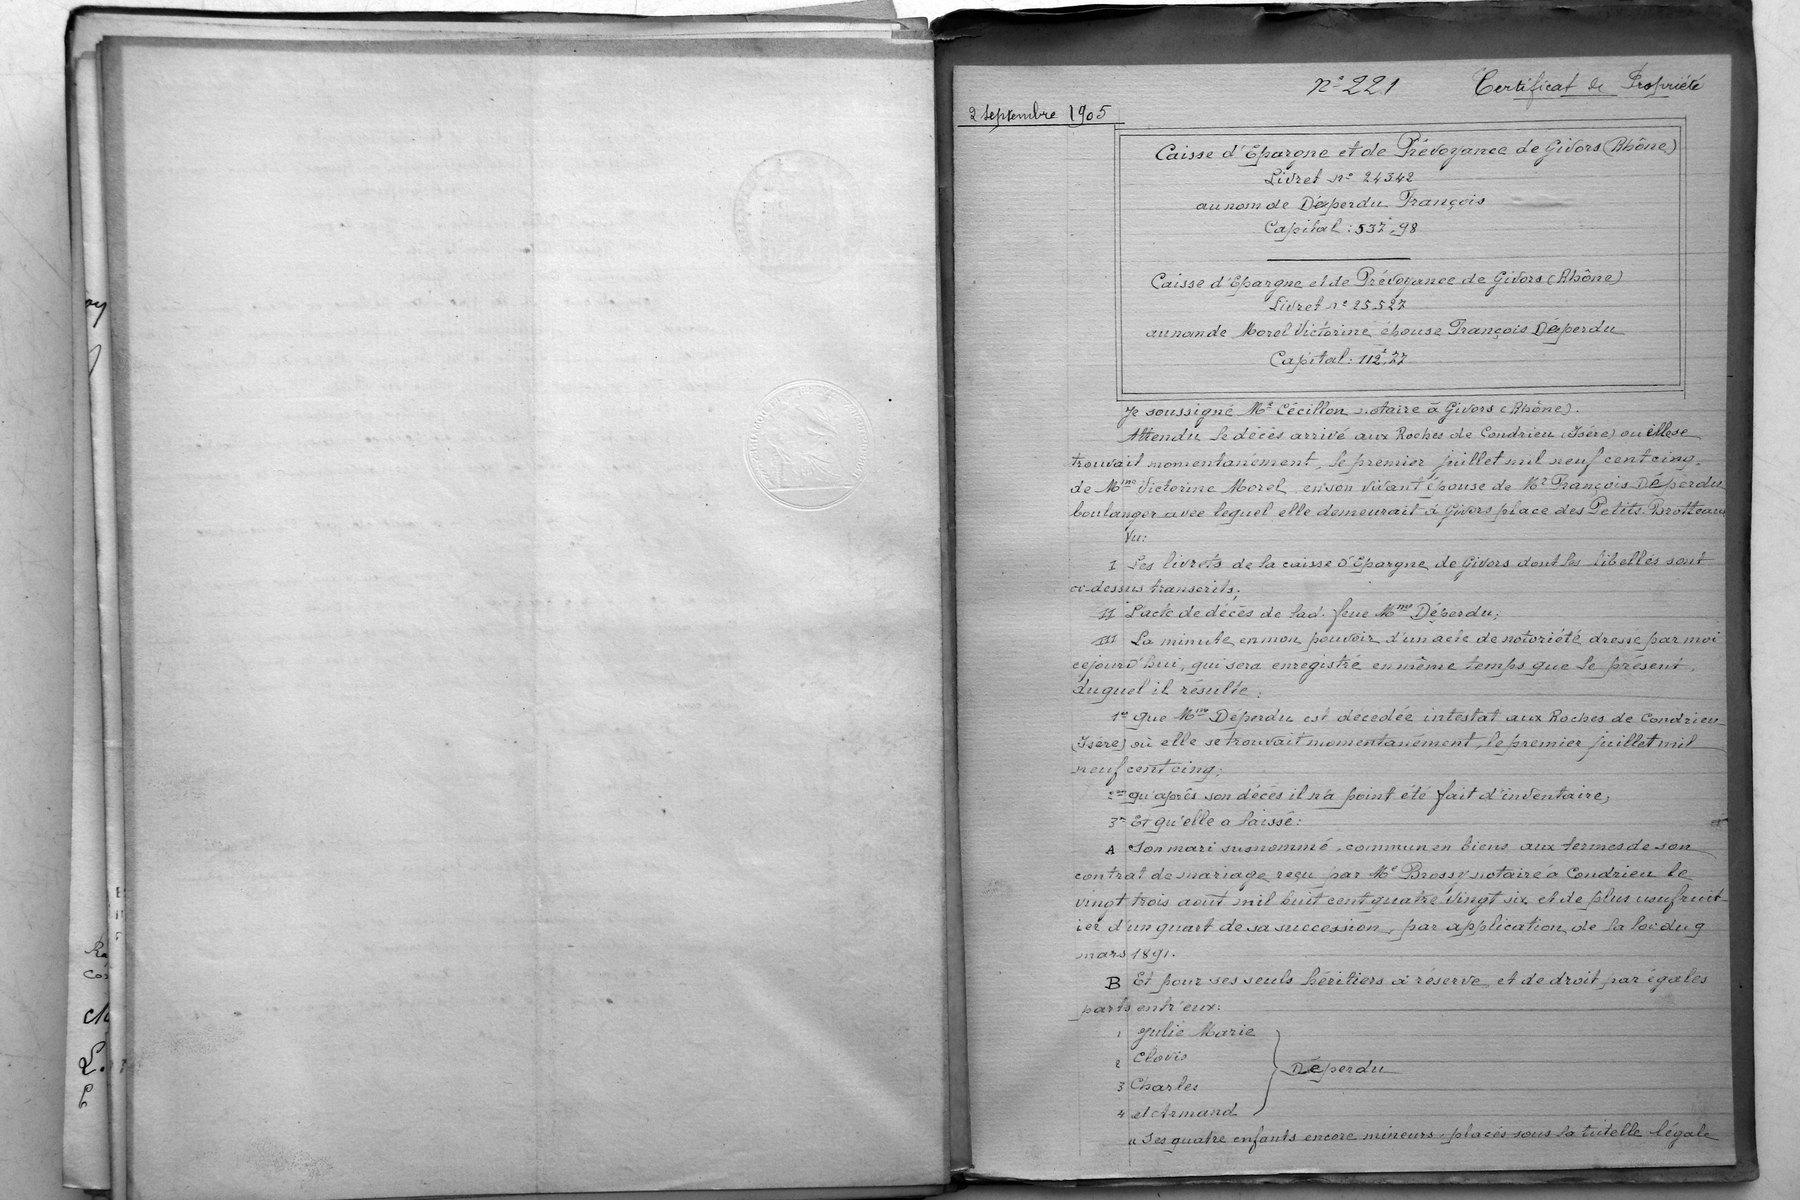 n° 221 Certificat de Propriété
2 septembre 1905
Caisse d'Epargne et de Prévoyance de Givors (Rhône)
Livret n° 24342
au nom de Déperdu François
Capital : 537f,98
Caisse d'Epargne et de Prévoyance de Givors (Rhône)
Livret n° 25.527
au nom de Morel Victorine épouse François Déperdu
Capital : 112f,77
Je soussigné Me Cécillon notaire à Givors (Rhône).
Attendu le décès arrivé aux Roches de Condrieu (Isère) ou elle se
trouvait momentanément, le premier juillet mil neuf cent cinq,
de Mme Victorine Morel en son vivant épouse de Mr François Déperdu
boulanger avec lequel elle demeurait à Givors place des Petits-Brotteaux
Vu:
I Les livrets de la caisse d'Epargne de Givors dont les libellés sont
ci-dessus transcrits;
II L'acte de décès de lad. feue Mme Déperdu;
III La minute en mon pouvoir d'un acte de notoriété dressé par moi
cejourd'hui, qui sera enregistré en même temps que le présent,
duquel il résulte:
1° que Mme Déperdu est décedée intestat aux Roches de Condrieu
(Isère) où elle se trouvait momentanément, le premier juillet mil
neuf cent cinq;
2° qu'après son décès il n'a point été fait d'inventaire;
3° Et qu'elle a laissé:
A Son mari susnommé, commun en biens aux termes de son
contrat de mariage reçu par Me Brossy notaire à Condrieu le
vingt trois aout mil huit cent quatre vingt six et de plus usufruit-
ier d'un quart de sa succession, par application de la loi du 9
mars 1891.
B Et pour ses seuls héritiers à réserve et de droit par égales
parts entr'eux:
1 Julie Marie
2 Clovis
Déperdu
3 Charles
4 et Armand
Ses quatre enfants encore mineurs, placés sous la tutelle légale